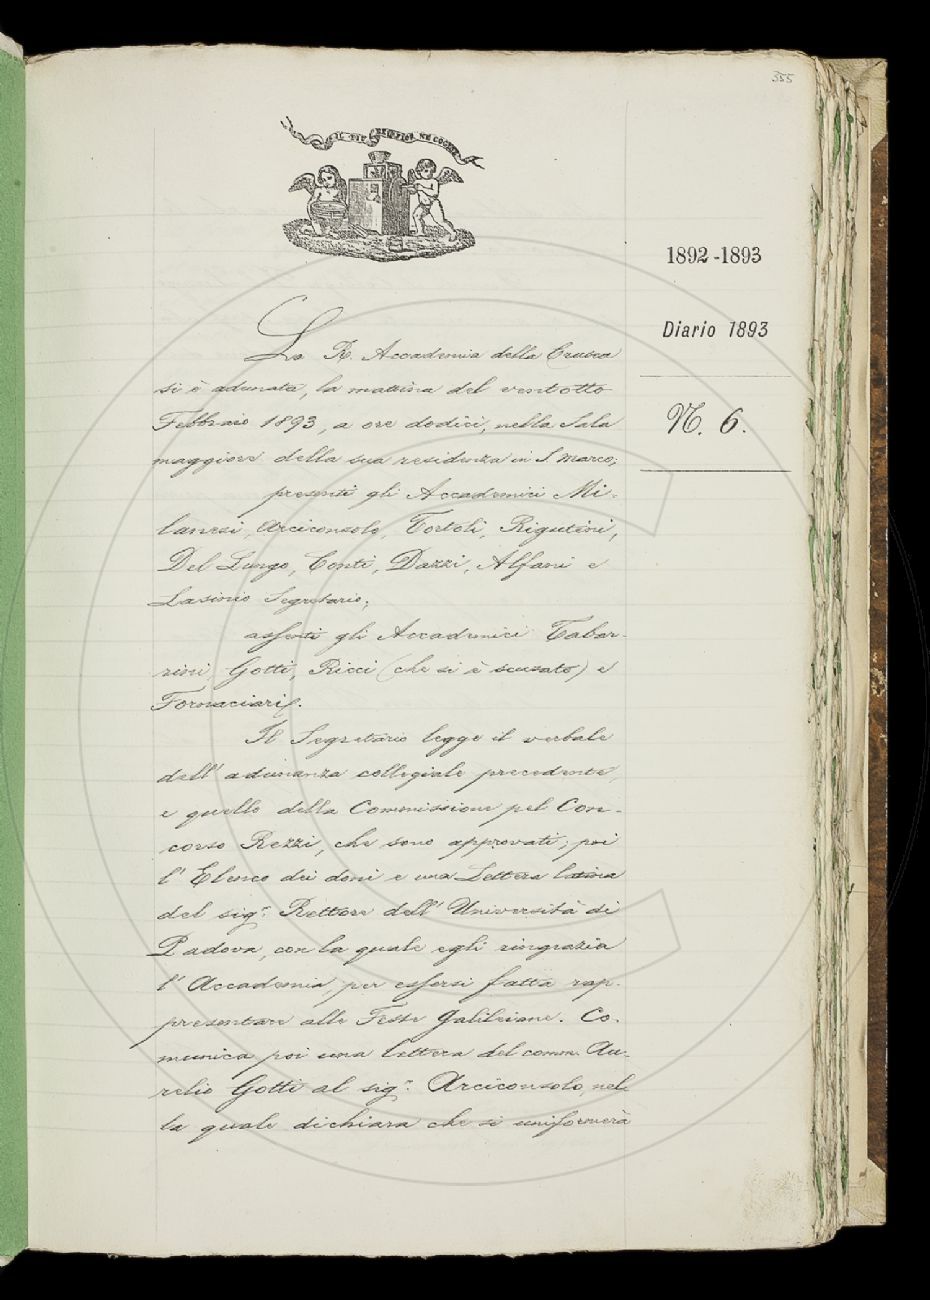 355
IL PIÙ BEL FIOR NE COGLIE
1892-1893
Diario 1893
N. 6.
La R. Accademia della Crusca
si è adunata, la mattina del ventotto
Febbraio 1893, a ore dodici, nella Sala
maggiore della sua residenza in S. Marco;
presenti gli Accademici Mi-
lanesi, Arciconsolo, Tortoli, Rigutini,
Del Lungo, Conti, Dazzi, Alfani e
Lasinio Segretario;
assenti gli Accademici Tabar-
rini, Gotti, Ricci (che si è scusato) e
Fornaciari.
Il Segretario legge il verbale
dell'adunanza collegiale precedente,
e quello della Commissione pel Con-
corso Rezzi, che sono approvati; poi
l'Elenco dei doni e una Lettera latina
del sigr. Rettore dell'Università di
Padova, con la quale egli ringrazia
l'Accademia, per essersi fatta rap-
presentare alle Feste Galileiane. Co-
munica poi una lettera del comm. Au-
relio Gotti al sigr. Arciconsolo, nel-
la quale dichiara che si uniformerà